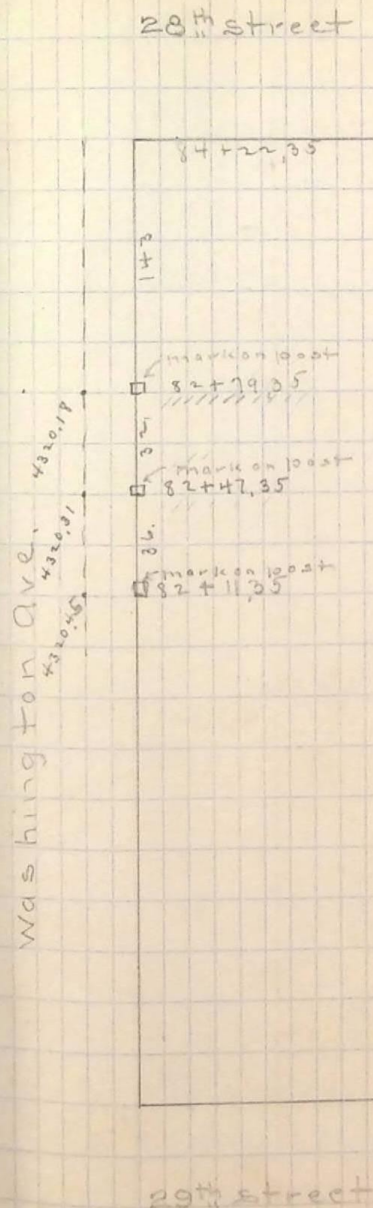 28th street
84+22,35
143
mark on post
82+79,35
32,
mark on post
82+47,35
36.
mark on post
82+11,35
4320.18
4320.31
4320.45
Washington Ave.
29th street